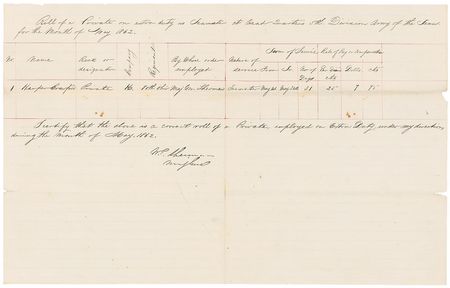 Roll of a Private on extra duty as Teamster at Head Quarters 5th Division Army of the Tenn
for the Month of May 1862.
Term of Service Rate of Pay or Compensation
No Name Rank or designation Company Regiment By whose order employed Nature of service From To No of Days Per Diem cts Dolls cts
1 Private Maj Gen Thomas Teamster May 31 25 7 75
I certify that the above is a correct roll of a Private employed on Extra Duty, under my direction,
during the month of May, 1862.
W.T. Sherman